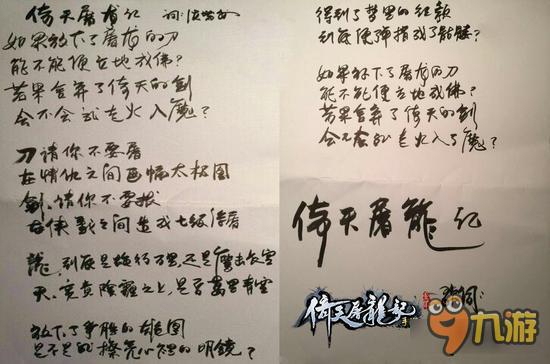 倚天屠龙记
词:
如果放下了屠龙的刀
能不能便立地成佛?
若果舍弃了倚天的剑
会不会就走火入魔?
刀 请你不要屠
在情仇之间画幅太极图
剑 请你不要拔
在侠 之间造成七级浮屠
龍,到底是 万里,还是
天,究竟 之上,是否萬里青空
放下了争胜的雄图
是不是就擦亮心裡的明鏡?
得到了梦里的红颜
到 便弹指成了骷髅?
如果放下了屠龙的刀
能不能便立地成佛?
若果舍弃了倚天的剑
会不会就走火入了魔?
倚天屠龍记
倚天屠龍記
手
九游